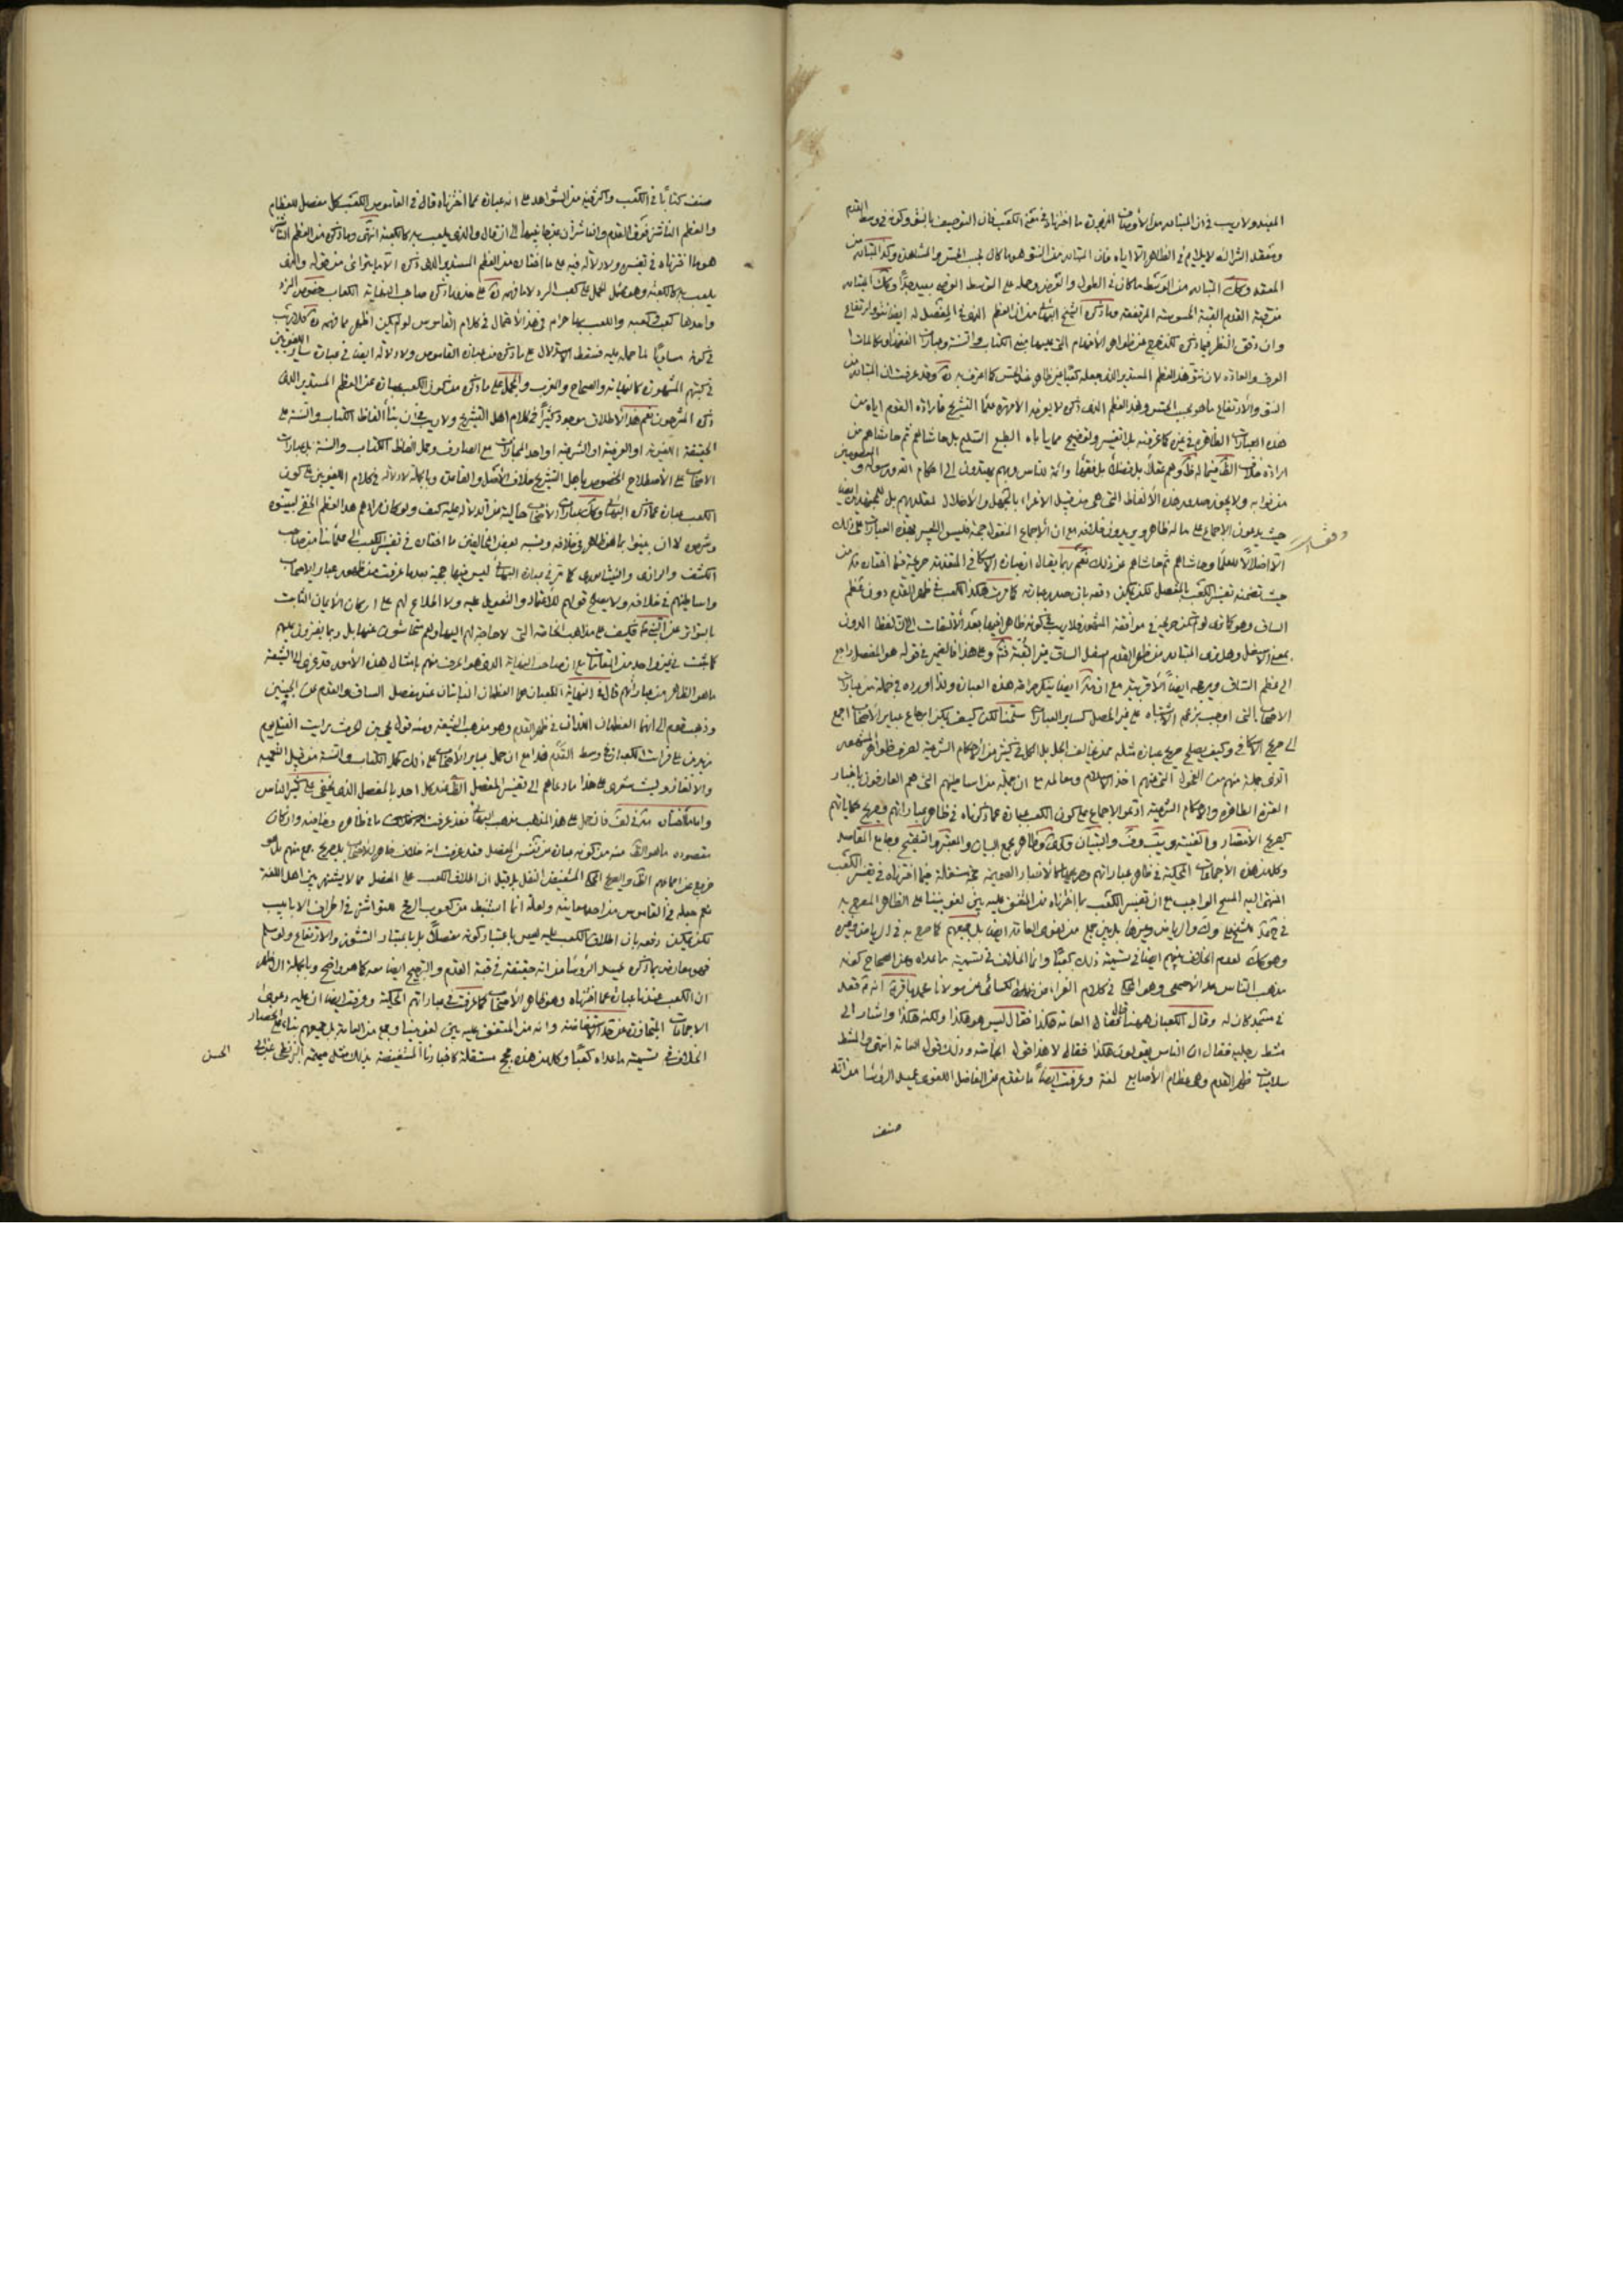 المفيد ولا ريب في ان المتبادر من الأوصاف
معقد الشراك لا يلايم في الظاهر الا اياه فان المتبادر من النتو هو ما كان بحسب الحس والمشاهدة وكذا المتبادر من
المعقد وكك المتبادر من التوسط ما كان في الطول والعرض وحمله على التوسط العرضي بعيد جدا وكك المتبادر
من قبة القدم القبة المحسوسة المرتفعة وما ذكره الشيخ البهائي من ان العظم الذي في المفصل له ايضا نتو وارتفاع
وان دقق النظر فيما ذكره تكلف يخرج عن ظواهر الأفهام التي عليها مبنى الكتاب والسنة وعبارات الفقهاء
العرف والعادة لان نتو هذا العظم المستدير الذي جعله كعبا غير ظاهر في الحس كما اعترف به وقد عرفت ان المتبادر من
النتو والارتفاع ما هو بحسب الحس وهذا العظم الذي ذكره لا يعرفه الا مهرة علماء التشريح فارادة القوم اياه من
هذه العبارات الظاهرة في غيره كما عرفته بلا تفسير وتوضيح مما يأباه الطبع السليم بل حاشاهم ثم حاشاهم من
ارادة خلاف الظ فيما له ظ وهم عقلاء بل فضلاء بل فقهاء وائمة للناس وبهم يهتدون الى احكام الله ورسوله و
من نوابه ولا يجوز صدور هذه الألفاظ التي هي من قبيل الاغراء بالجهل والاضلال لمقلديهم بل للمجتهدين ايضا
حيث يدعون الاجماع على ما له ظاهر ويريدون خلافه مع ان الاجماع المنقول حجة فليس التعبير بهذه العبارات على ذلك
الا اضلالا للعلماء وحاشاهم ثم حاشاهم عن ذلك نعم ربما يقال ان عبارة الاسكافي المتقدمة صريحة فيما اختاره
حيث تضمنه تفسير الكعب بالمفصل لكن يمكن دفعه بان صدر عبارته كما مرت هكذا الكعب في ظهر القدم دون عظم
الساق وهو كما ترى لو لم يكن صريحا في موافقة المشهور فلا ريب في كونه ظاهرا فيها بعد الالتفات الى ان لفظ الدون
بمعنى الاسفل وهل ترى المتبادر من ظهر القدم اسفل الساق غير القبة وعلى هذا فالضمير في قوله هو المفصل راجع
الى عظم الساق ويرجحه ايضا الأقربية مع ان ايضا ينكر صراحة هذه العبارة ولذا اورده في جملة من عبارات
الاصحاب التي اوجبت بزعمه الاشتباه على غير المحصل كساير العبارات سلمنا لكن كيف يمكن ارجاع عباير الأصحاب اجمع
الى صريح الاسكافي وكيف يصلح صريح عبارة مثله ممن يخالف الجل بل الكل في كثير من الاحكام الشرعية لصرف ظواهر
اخرى جملة منهم من الفحول الذين منهم اخذ الاسلام ومعالمه مع ان جملة من اساطينهم الذين هم العارفون باخبار
العترة الطاهرة والاحكام الشرعية ادعوا الاجماع مع كون الكعب عبارة عما ذكرناه في ظاهر عباراتهم وصريح حكاياتهم
كصريح الانتصار والغنية
وكل من هذه الأجماعات المحكية في ظاهر عباراتهم وصريحها كالأخبار الصحيحة حجة مستقلة فيما اخترناه في تفسير الكعب
المنتهى اليه المسح الواجب مع ان تفسير الكعب بما اخترناه من المتفق عليه بين لغويينا على الظاهر المصرح به
وهو كك لعدم الخلاف بينهم ايضا في تسمية ذلك كعبا وانما الخلاف في تسمية ما عداه وعن الصحاح كونه
مذهب الناس عدا الأصمعي وهو المحكي في كلام الفراء عن الكسائي عن مولانا محمد باقر انه قعد
في مسجد كان له وقال الكعبان ههنا فقال له العامة هكذا فقال ليس هو هكذا ولكنه هكذا واشار الى
مشط رجليه فقال ان الناس يقولون هكذا فقال لا هذا قول الخاصة وذلك قول العامة انتهى والمشط
سلاميات ظهر القدم وهي عظام الأصابع لغة وعرفت ايضا ما تقدم عن الفاضل اللغوي عميد الرؤسا من انه
صنف
صنف كتابا في الكعب واكثر فيه من الشواهد على انه عبارة عما اخترناه قال في القاموس الكعب كل مفصل للعظام
والعظم الناشز فوق القدم والناشزان من جانبيها الى ان قال والذي يلعب به كالكعبة انتهى وما ذكره من العظم الناشز
هو ما اخترناه في تفسيره ولا دلالة فيه على ما اختاره من العظم المستدير الذي ذكره الا ما يتراءى من قوله والذي
يلعب به كالكعبة وهو محتمل للحمل على كعب النرد لا ما فهمه على حذو ما ذكره صاحب النهاية الكعاب فصوص النرد
واحدها كعب وكعبة واللعب بها حرام وهذا الأحتمال في كلام القاموس لو لم يكن اظهر مما فهمه فلا ريب
في كونه مساويا لما حمله عليه فسقط الاستدلال على ما ذكره من عبارة القاموس ولا دلالة ايضا في عبارة ساير اللغويين
في كتبهم المشهورة كالنهاية والصحاح والمغرب والمجمل على ما ذكره من كون الكعب عبارة عن العظم المستدير الذي
ذكره المشرحون نعم هذا الأطلاق موجود كثيرا في كلام اهل التشريح ولا ريب في ان بناء الفاظ الكتاب والسنة على
الحقيقة اللغوية او العرفية او الشرعية او احد المجازات مع الصارف وحمل الفاظ الكتاب والسنة بل عبارات
الاصحاب على الأصطلاح المخصوص باهل التشريح خلاف الأصل والقاعدة وبالجملة لا دلالة في كلام اللغويين على كون
الكعب عبارة عما ذكره البهائي وكك عبارات الأصحاب خالية من الدلالة عليه كيف ولو كان مرادهم هذا العظم الخفي لبينوه
وشرحوه لا ان يعبروا بما هو ظاهر في خلافه ونسبة بعض المخالفين ما اختاره في تفسير الكعب الى علمائنا من صاحب
الكشف والرازي والنيشابوري كما مر في عبارة البهائي ليس فيها حجية بعد ما عرفت من ظهور عباير الاصحاب
واساطينهم في خلافه ولا يصلح قولهم للاعتماد والتعويل عليه ولا اطلاع لهم على اركان الأيمان الثابت
بالتواتر عن النبي فكيف على مذاهب الخاصة التي لا حاجة لهم اليها ولم يتحاشون عنها بل وربما يفترون عليهم
كما ثبت في غير واحد من المقامات مع ان صاحب النهاية الذي هو اعرف منهم بامثال هذه الأمور قد عزى الى الشيعة
ما هو الظاهر من عباراتهم قال في النهاية الكعبان هما العظمان الناتئان عند مفصل الساق والقدم عن الجنبين
وذهب قوم الى انهما العظمان اللذان في ظهر القدم وهو مذهب الشيعة ومنه قول يحيى بن الحرث رايت القتلى يوم
زيد بن علي فرايت الكعاب في وسط القدم هذا مع ان حمل عباير الأصحاب على ذلك كحمل الكتاب والسنة من قبيل التعمية
والالغاز وليت شعري على هذا ما دعاهم الى تفسير المفصل الظ عند كل احد بالمفصل الذي يخفى على كثير الناس
مقصوده ما هو الظ منه من كونه عبارة عن نفس المفصل فقد عرفت انه خلاف ظاهر الأصحاب بل صريح جمع منهم بل هو
خروج عن اجماعهم الظ والصريح المحكي المستفيض النقل بل قيل ان اطلاق الكعب على المفصل مما لا يشتهر بين اهل اللغة
نعم جعله في القاموس من احد معانيه ولعله انما استنبط من كعوب الرمح للنواشز في اطراف الانابيب
لكن يمكن دفعه بان اطلاق الكعب عليه ليس باعتبار كونه مفصلا بل باعتبار النشوز والارتفاع ولو سلم
فهو معارض بما ذكره عميد الرؤسا من انه حقيقة في قبة القدم والترجيح ايضا معه كما هو واضح وبالجملة الاظهر
ان الكعب عندنا عبارة عما اخترناه وهو ظاهر الأصحاب كما عرفت في عباراتهم المحكية وعرفت ايضا ان عليه دعوى
الاجماعات المتجاوزة عن حد الاستفاضة وانه من المتفق عليه بين لغويينا وجمع من العامة بل جميعهم
الخلاف في تسمية ما عداه كعبا وكل من هذه حجج مستقلة كاخبارنا المستفيضة بذلك مثل صحيحة البزنطي عن ابي
الحسن